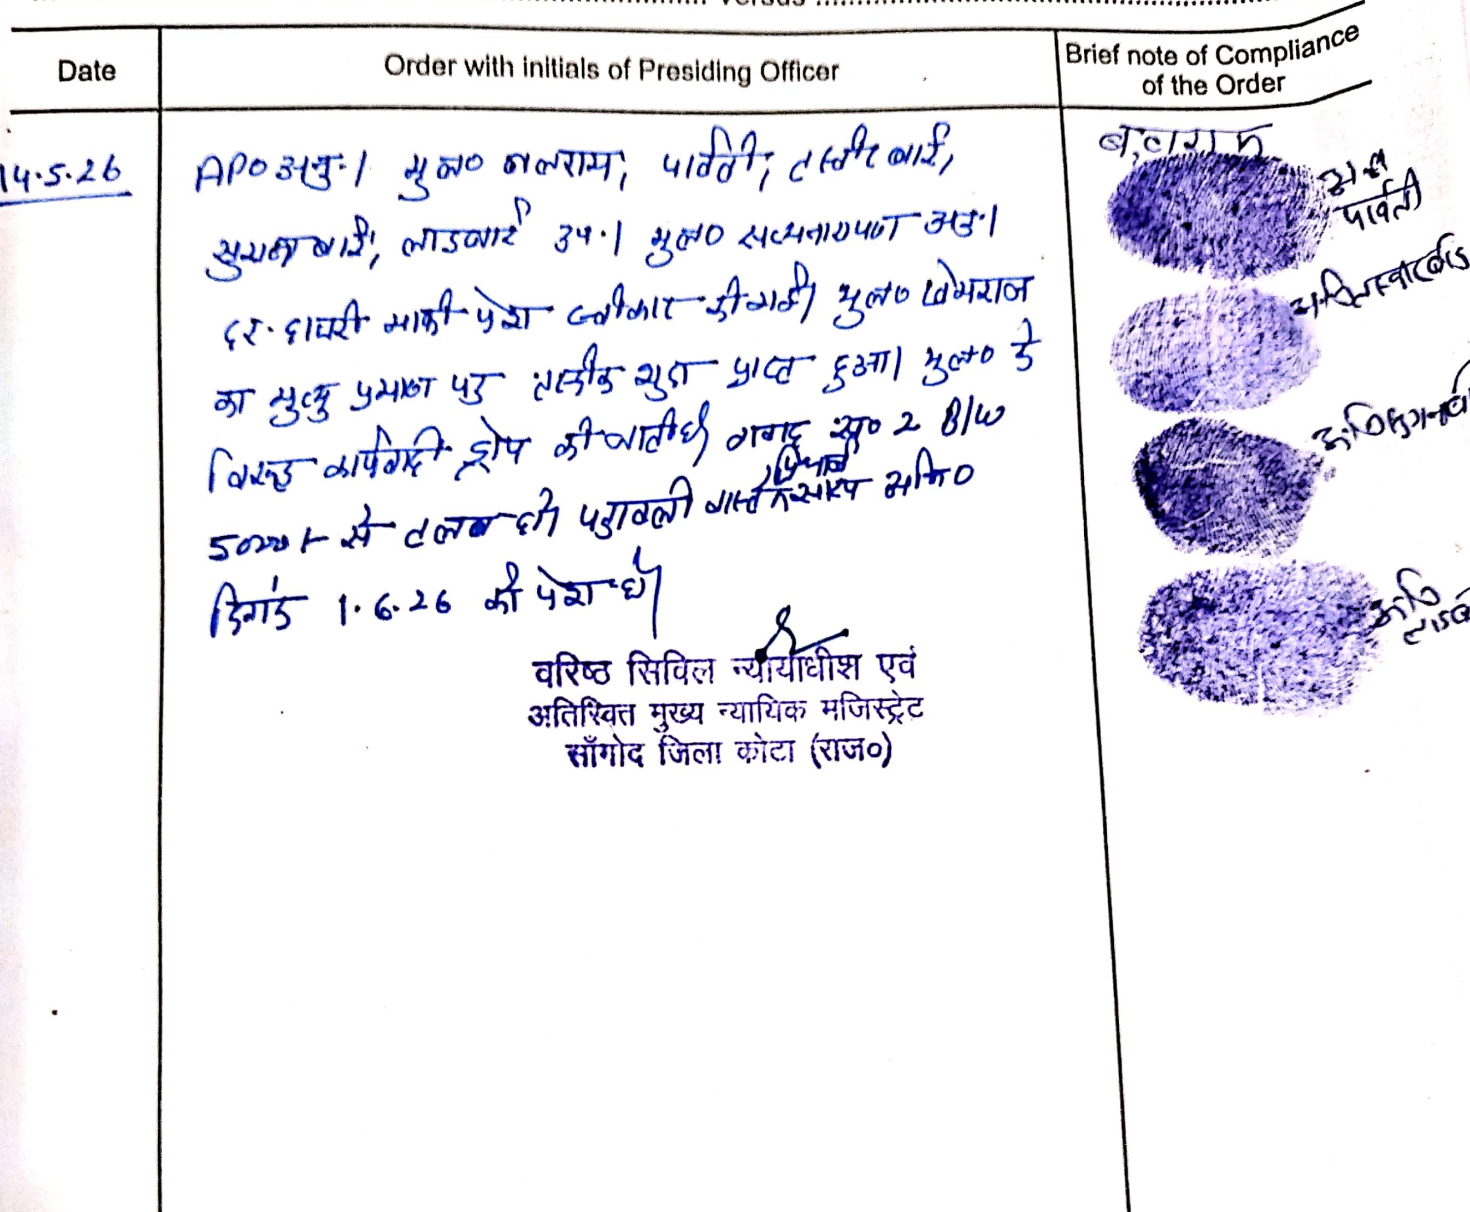 Versus
Date
Order with initials of Presiding Officer
Brief note of Compliance
of the Order
14.5.26
APO अनु.। मुल० बलराम, पार्वती,
बाई, लाडबाई उप.। मुल० सत्यनारायण अनु.।
दर. हाजरी माफी पेश स्वीकार की गई। मुल० खेमराज
का मृत्यु प्रमाण पत्र तस्दीक शुदा प्राप्त हुआ। मुल० के
विरुद्ध कार्यवाही ड्रोप की जाती है। गवाह 2 B/W
से तलब हो। पत्रावली वास्ते
दिनांक 1.6.26 को पेश हो।
वरिष्ठ सिविल न्यायाधीश एवं
अतिरिक्त मुख्य न्यायिक मजिस्ट्रेट
साँगोद जिला कोटा (राज०)
बलराम
पार्वती